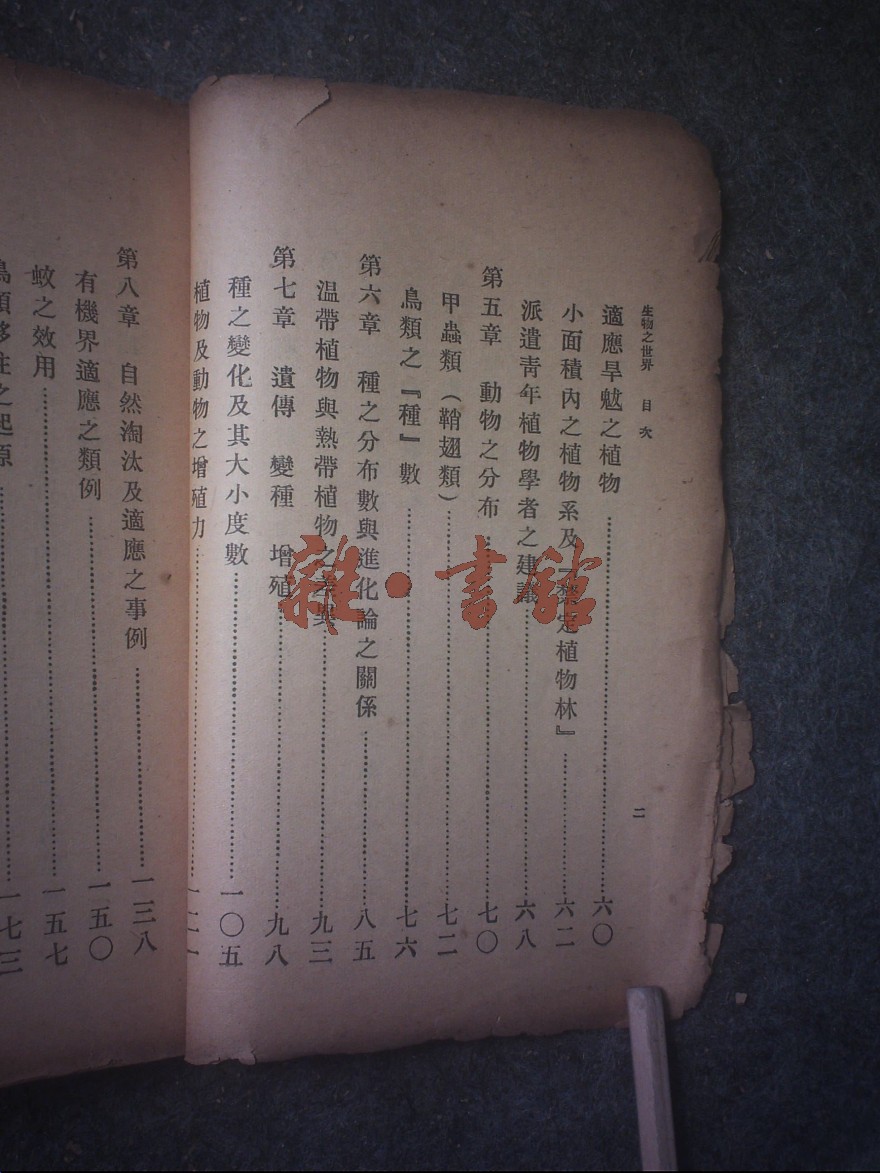 生物之世界 目次 二
適應旱魃之植物 六〇
小面積內之植物系及『禁定植物林』 六二
派遣青年植物學者之建議 六八
第五章 動物之分布 七〇
甲蟲類（鞘翅類） 七二
鳥類之『種』數 七六
第六章 種之分布數與進化論之關係 八五
溫帶植物與熱帶植物之差異 九三
第七章 遺傳 變種 增殖 九八
種之變化及其大小度數 一〇五
植物及動物之增殖力
第八章 自然淘汰及適應之事例 一三八
有機界適應之類例 一五〇
蚊之效用 一五七
鳥類移住之起原 一七三
雜·書館